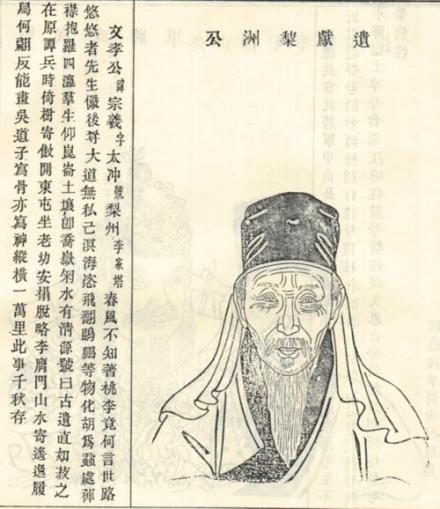 遺獻棃洲公
文孝公諱宗羲字太冲號梨州李家塔 春風不知著桃李竟何言世路
悠悠者先生儼後尊大道無私己溟海恣飛翻鵾鵬等物化胡爲蝨處褌
襟抱羅四瀛羣生仰崑崙土壤卽喬嶽水有清源號曰古遺直如菽之
在原譚兵時倚樹寄傲開東屯坐老幼安榻脫略李膺門山水寄遙逸履
何翩反能畫吳道子寫骨亦寫神縱橫一萬里此事千秋存